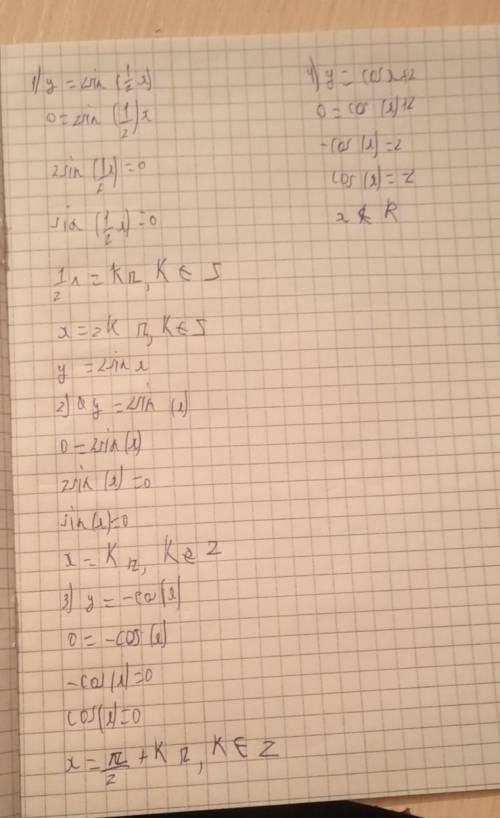 1) y = 2sin (1/2 x)
0 = 2sin (1/2) x
2sin (1/2 x) = 0
sin (1/2 x) = 0
1/2 x = Kπ, K ∈ S
x = 2K π, K ∈ S
y = 2sin x
2) y = 2sin (x)
0 = 2sin (x)
2sin (x) = 0
sin (x) = 0
x = K π, K ∈ Z
3) y = -cos (x)
0 = -cos (x)
-cos (x) = 0
cos (x) = 0
x = π/2 + K π, K ∈ Z
4) y = cos x+2
0 = cos (x)+2
-cos (x) = 2
cos (x) = -2
x ∉ R